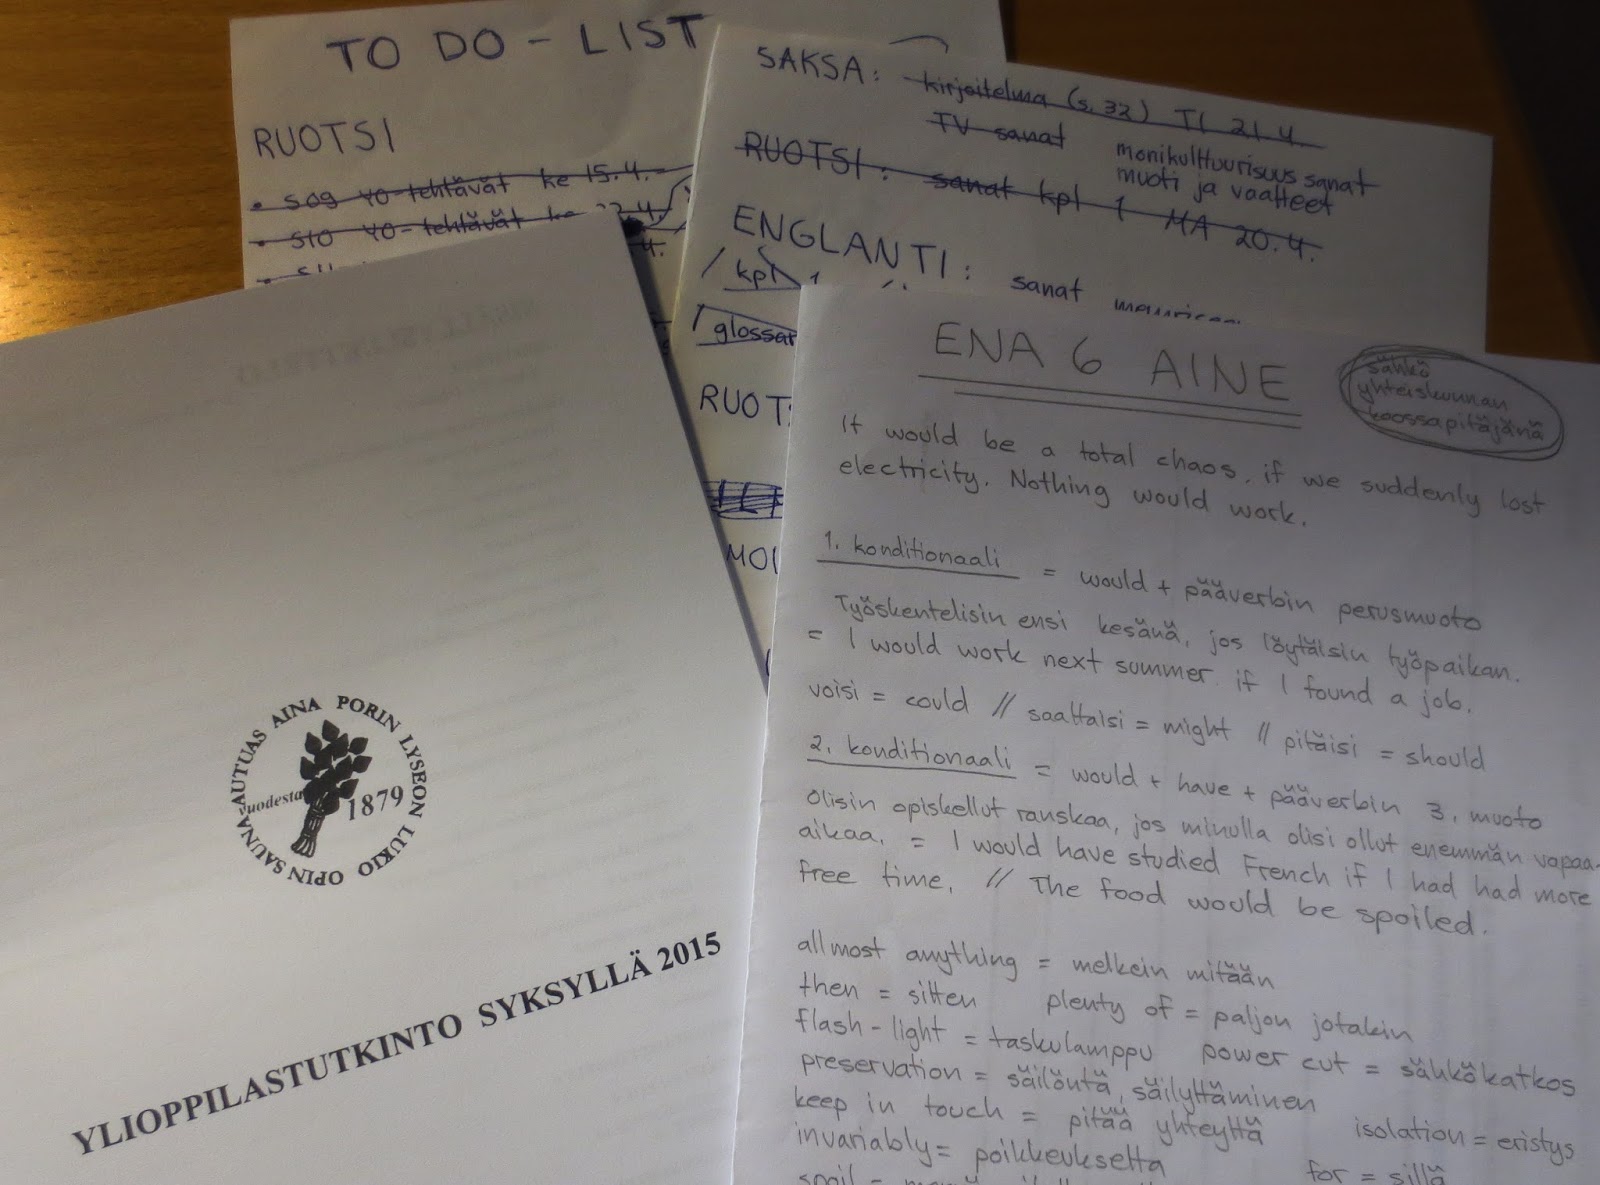 TO DO - LIST
RUOTSI
• S09 YO-tehtävät ke 15.4.
• S10 YO-tehtävät ke 22.4.
SAKSA: kirjoitelma (s. 32) TI 21.4.
TV sanat monikulttuurisuus sanat
muoti ja vaatteet
RUOTSI: sanat kpl 1 MA 20.4.
ENGLANTI: sanat
kpl 1
glossar
RUOTS
MOI
ENA 6 AINE
sähkö
yhteiskunnan
koossapitäjänä
It would be a total chaos, if we suddenly lost
electricity. Nothing would work.
1. konditionaali = would + pääverbin perusmuoto
Työskentelisin ensi kesänä, jos löytäisin työpaikan.
= I would work next summer if I found a job.
voisi = could // saattaisi = might // pitäisi = should
2. konditionaali = would + have + pääverbin 3. muoto
Olisin opiskellut ranskaa, jos minulla olisi ollut enemmän vapaa-
aikaa. = I would have studied French if I had had more
free time. // The food would be spoiled.
allmost anything = melkein mitään
then = sitten plenty of = paljon jotakin
flash-light = taskulamppu power cut = sähkökatkos
preservation = säilöntä, säilyttäminen
keep in touch = pitää yhteyttä isolation = eristys
invariably = poikkeuksetta for = sillä
spoil =
OPIN SAUNA AUTUAS AINA PORIN LYSEON LUKIO
vuodesta 1879
YLIOPPILASTUTKINTO SYKSYLLÄ 2015